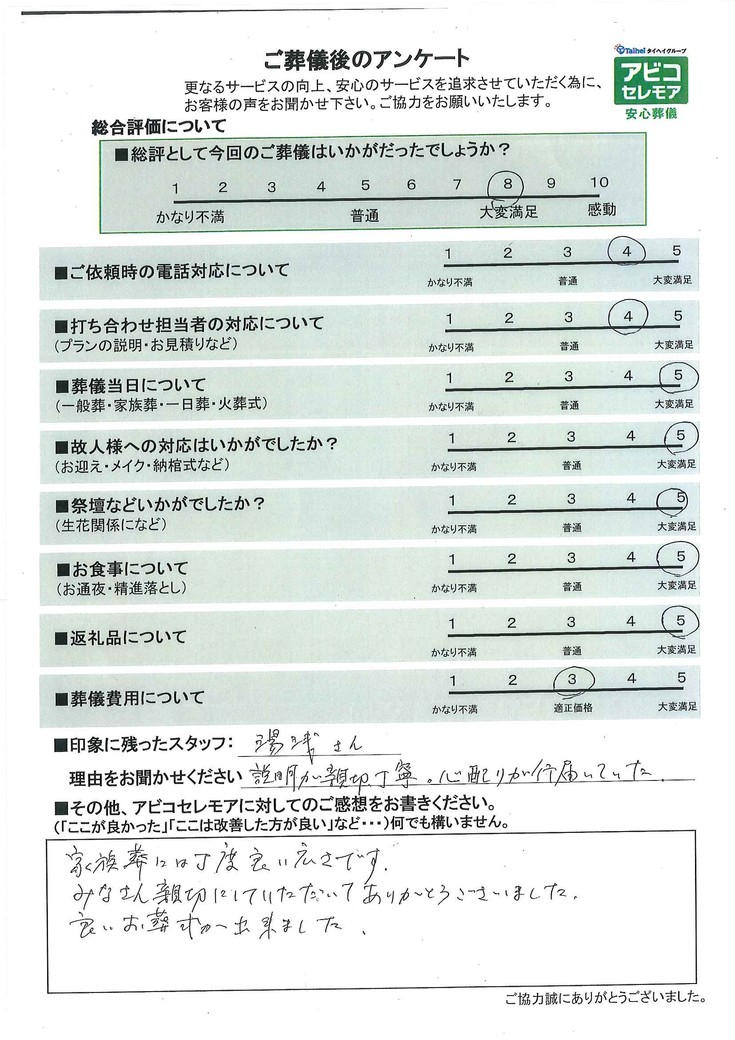 ご葬儀後のアンケート
Taihei タイヘイグループ
アビコ
セレモア
安心葬儀
更なるサービスの向上、安心のサービスを追求させていただく為に、
お客様の声をお聞かせ下さい。ご協力をお願いいたします。
総合評価について
■総評として今回のご葬儀はいかがだったでしょうか？
1 2 3 4 5 6 7 8 9 10
かなり不満 普通 大変満足 感動
■ご依頼時の電話対応について
1 2 3 4 5
かなり不満 普通 大変満足
■打ち合わせ担当者の対応について
(プランの説明・お見積りなど)
1 2 3 4 5
かなり不満 普通 大変満足
■葬儀当日について
(一般葬・家族葬・一日葬・火葬式)
1 2 3 4 5
かなり不満 普通 大変満足
■故人様への対応はいかがでしたか？
(お迎え・メイク・納棺式など)
1 2 3 4 5
かなり不満 普通 大変満足
■祭壇などいかがでしたか？
(生花関係になど)
1 2 3 4 5
かなり不満 普通 大変満足
■お食事について
(お通夜・精進落とし)
1 2 3 4 5
かなり不満 普通 大変満足
■返礼品について
1 2 3 4 5
かなり不満 普通 大変満足
■葬儀費用について
1 2 3 4 5
かなり不満 適正価格 大変満足
■印象に残ったスタッフ： 湯浅さん
理由をお聞かせください 説明が親切丁寧。心配りが行届いていた。
■その他、アビコセレモアに対してのご感想をお書きください。
(「ここが良かった」「ここは改善した方が良い」など・・・)何でも構いません。
家族葬には丁度良い広さです。
みなさん親切にしていただいてありがとうございました。
良いお葬式が出来ました。
ご協力誠にありがとうございました。